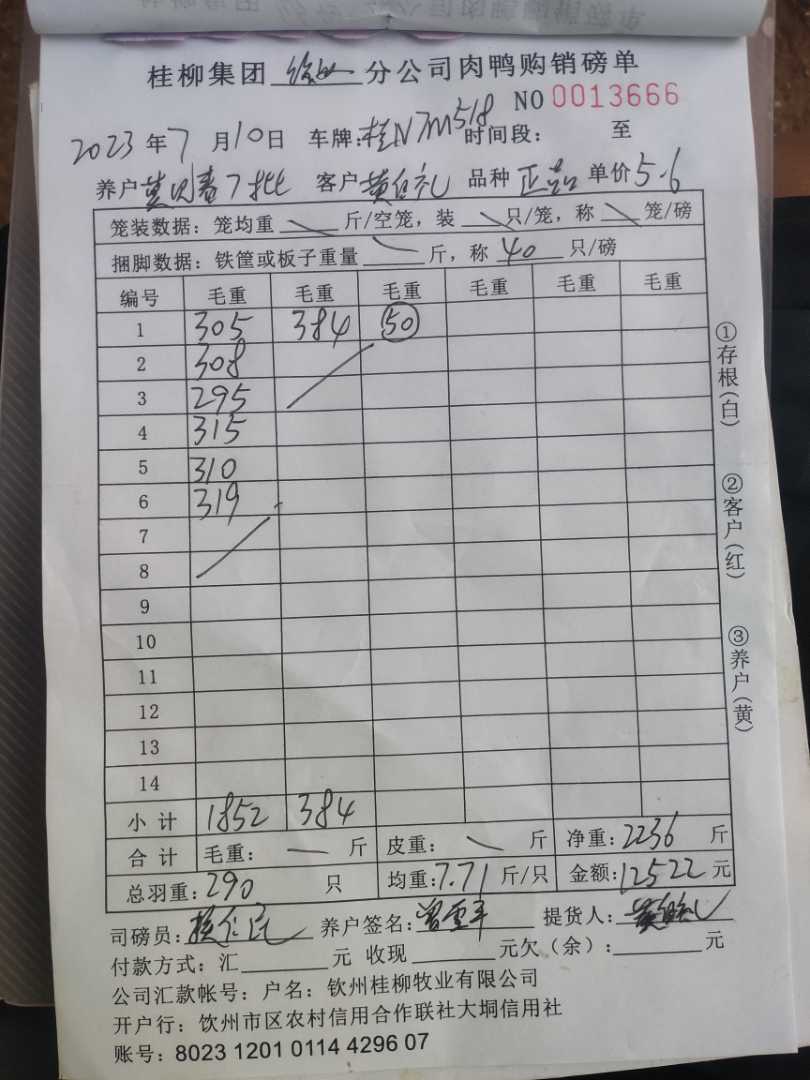 桂柳集团 分公司肉鸭购销磅单
NO 0013666
2023 年 7 月 10 日 车牌: 桂N7M518 时间段: 至
养户 莫 7批 客户 黄 礼 品种 正品 单价 5.6
笼装数据: 笼均重 斤/空笼, 装 只/笼, 称 笼/磅
捆脚数据: 铁筐或板子重量 斤, 称 40 只/磅
编号 毛重 毛重 毛重 毛重 毛重 毛重
1 305 384 50
2 308
3 295
4 315
5 310
6 319
7
8
9
10
11
12
13
14
小计 1852 384
合计 毛重: 斤 皮重: 斤 净重: 2236 斤
总羽重: 290 只 均重: 7.71 斤/只 金额: 12522 元
司磅员: 养户签名: 提货人:
付款方式: 汇 元 收现 元欠(余): 元
公司汇款帐号: 户名: 钦州桂柳牧业有限公司
开户行: 饮州市区农村信用合作联社大垌信用社
账号: 8023 1201 0114 4296 07
①存根(白)
②客户(红)
③养户(黄)